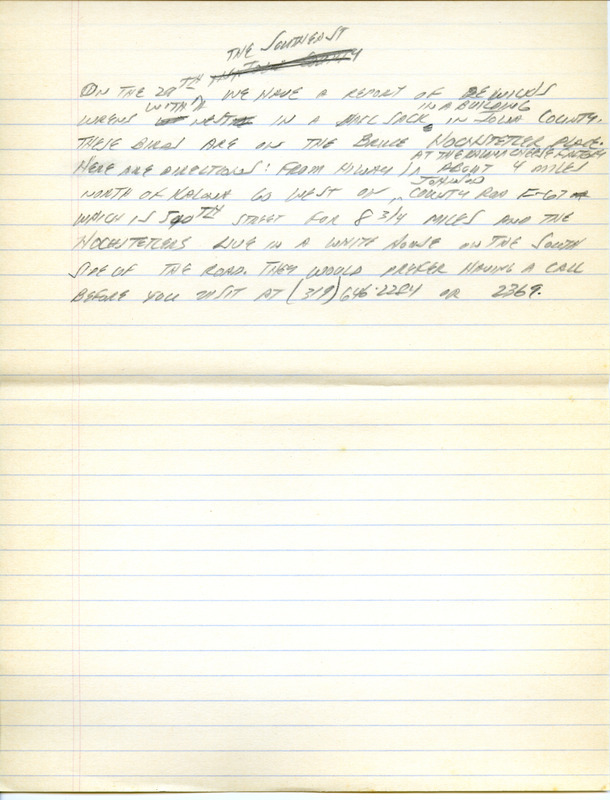 THE SOUTHEAST
ON THE 29TH WE HAVE A REPORT OF BEWICK'S
WITH A IN A BUILDING
WRENS NEST IN A MAIL SACK, IN IOWA COUNTY.
THESE BIRDS ARE ON THE BRUCE HOCHSTETLER PLACE.
AT THE KALONA CHEESE FACTORY
HERE ARE DIRECTIONS: FROM HIWAY 1, ABOUT 4 MILES
JOHNSON
NORTH OF KALONA GO WEST ON COUNTY ROAD F-67
WHICH IS 540TH STREET FOR 8 3/4 MILES AND THE
HOCHSTETLERS LIVE IN A WHITE HOUSE ON THE SOUTH
SIDE OF THE ROAD. THEY WOULD PREFER HAVING A CALL
BEFORE YOU VISIT AT (319) 646-2284 OR 2369.